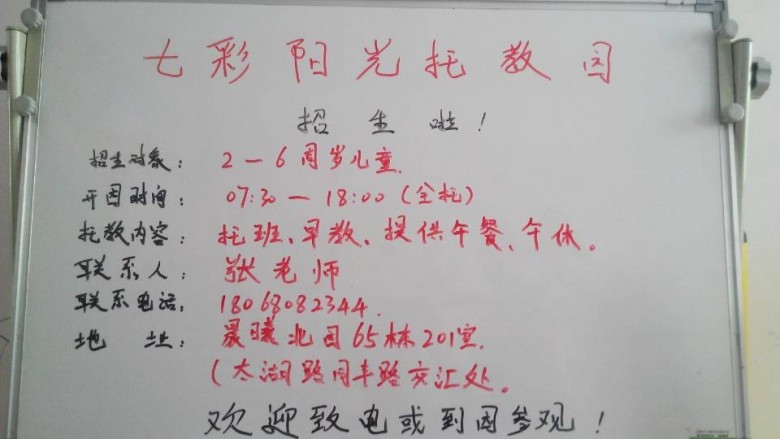 七彩阳光托教园
招生啦！
招生对象：2－6周岁儿童.
开园时间：07:30－18:00（全托）
托教内容：托班、早教、提供午餐、午休。
联系人：张老师
联系电话：18068082344.
地址：晨曦北园65栋201室.
（太湖路同丰路交汇处。
欢迎致电或到园参观！